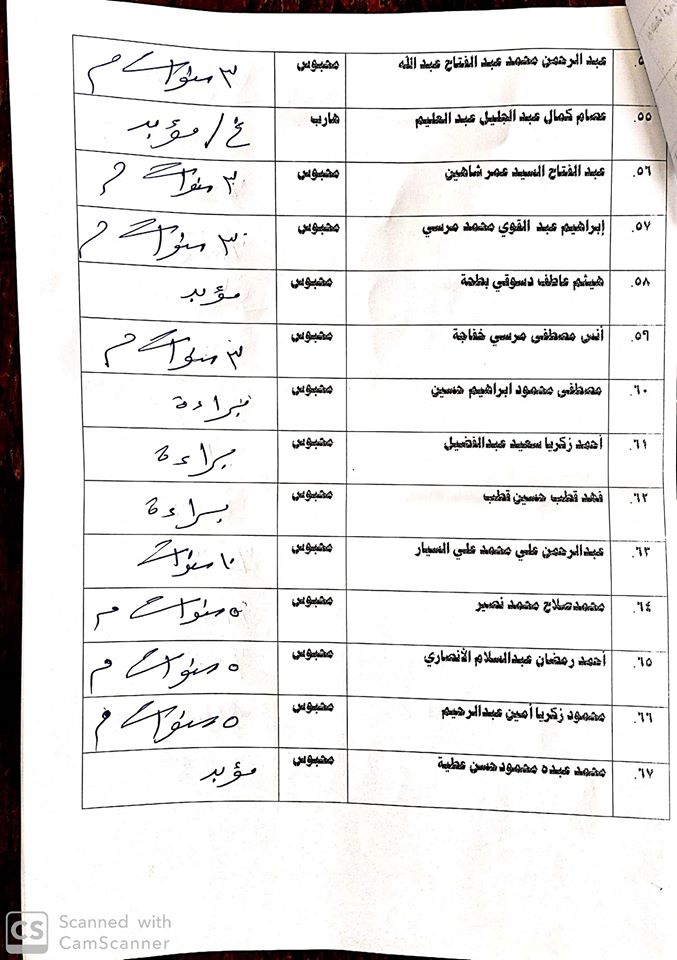 عبد الرحمن محمد عبد الفتاح عبد الله محبوس ٣ سنوات م
٥٥. عصام كمال عبد الجليل عبد العليم هارب غ/ مؤبد
٥٦. عبد الفتاح السيد عمر شاهين محبوس ٣ سنوات م
٥٧. إبراهيم عبد القوي محمد مرسي محبوس ٣ سنوات م
٥٨. هيثم عاطف دسوقي بطحة محبوس مؤبد
٥٩. أنس مصطفى مرسي خفاجة محبوس ٣ سنوات م
٦٠. مصطفى محمود ابراهيم حسين محبوس براءة
٦١. أحمد زكريا سعيد عبدالفضيل محبوس براءة
٦٢. فهد قطب حسين قطب محبوس براءة
٦٣. عبدالرحمن علي محمد علي السيار محبوس ١٠ سنوات
٦٤. محمدصلاح محمد نصير محبوس ٥ سنوات م
٦٥. أحمد رمضان عبدالسلام الأنصاري محبوس ٥ سنوات م
٦٦. محمود زكريا أمين عبدالرحيم محبوس ٥ سنوات م
٦٧. محمد عبده محمودحسن عطية محبوس مؤبد
CS Scanned with
CamScanner